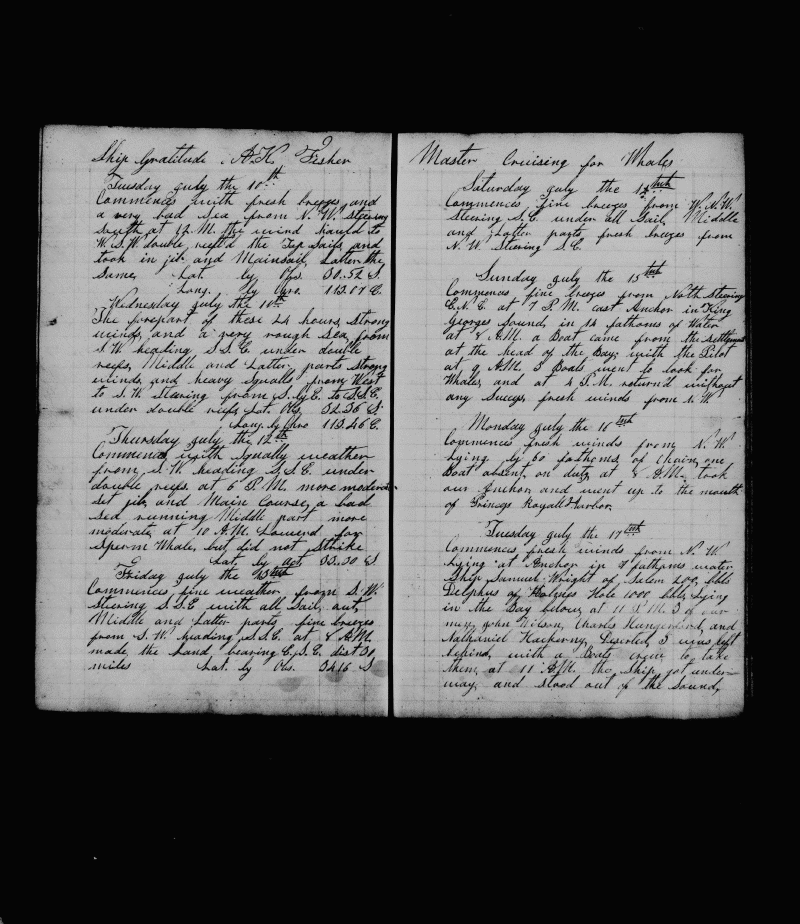 Ship Gratitude A. K. Fisher
Tuesday july the 10th
Commences with fresh breezes and
a very bad Sea from N. W. Steering
South at 12 M. the wind hauld to
W.S.W. double reef'd the Top Sails and
took in jib and Mainsail Latter the
Same, Lat. by Obs. 30.52 S.
Long. by Chro. 113.07 E.
Wednesday july the 11th
The forepart of these 24 hours strong
winds and a very rough Sea from
S.W. heading S.S.E. under double
reefs, Middle and Latter parts strong
winds and heavy squalls from West
to S.W. Steering from S. by E. to S.S.E.
under double reefs Lat. Obs. 32.36 S.
Long. by Chro 113.46 E.
Thursday july the 12th
Commences with squally weather
from S.W. heading S.S.E. under
double reefs at 6 P.M. more moderate
set jib and Main Course, a bad
Sea running Middle part more
moderate at 10 A.M. Lowerd for
Sperm Whale, but did not strike
Lat. by act 33.30 S
Friday july the 13teth
Commences fine weather from S.W.
Steering S.S.E with all Sail, out,
Middle and Latter parts fine breezes
from S.W. heading S.S.E. at 8 A.M.
made the Land bearing E.S.E. dist 30
miles Lat. by Obs. 34.16 S
Master Cruising for Whales
Saturday july the 14teth
Commences fine breezes from W.N.W.
Steering S.E. under all Sail, Middle
and Latter parts fresh breezes from
N.W. Steering S.E.
Sunday july the 15teth
Commences fine breezes from North Steering
E.N.E. at 7 P.M. cast Anchor in King
Georges Sound, in 14 fathoms of Water
at 8 A.M. a Boat came from the settlement
at the head of the Bay, with the Pilot
at 9 A.M. 3 Boats went to look for
Whales, and at 4 P.M. return'd without
any Success, fresh winds from N.W.
Monday july the 16teth
Commences fresh winds from N.W.
Lying by 60 fathoms of Chain, one
Boat absent on duty at 8 A.M. took
our Anchor and went up to the mouth
of Princess Royall Harbor
Tuesday july the 17teth
Commences fresh winds from N.W.
Lying at Anchor in 7 fathoms water
Ship Samuel Wright of Salem 200, bbls
Delphus of Holmes Hole 1000, bbls, Lying
in the Bay below, at 11 P.M. 3 of our
men, john Wilson, Charles Hungerford, and
Nathaniel Deserted, 3 was left
behind, with a Boats crew to take
them, at 11 A.M. the Ship got under-
way and stood out of the Sound,